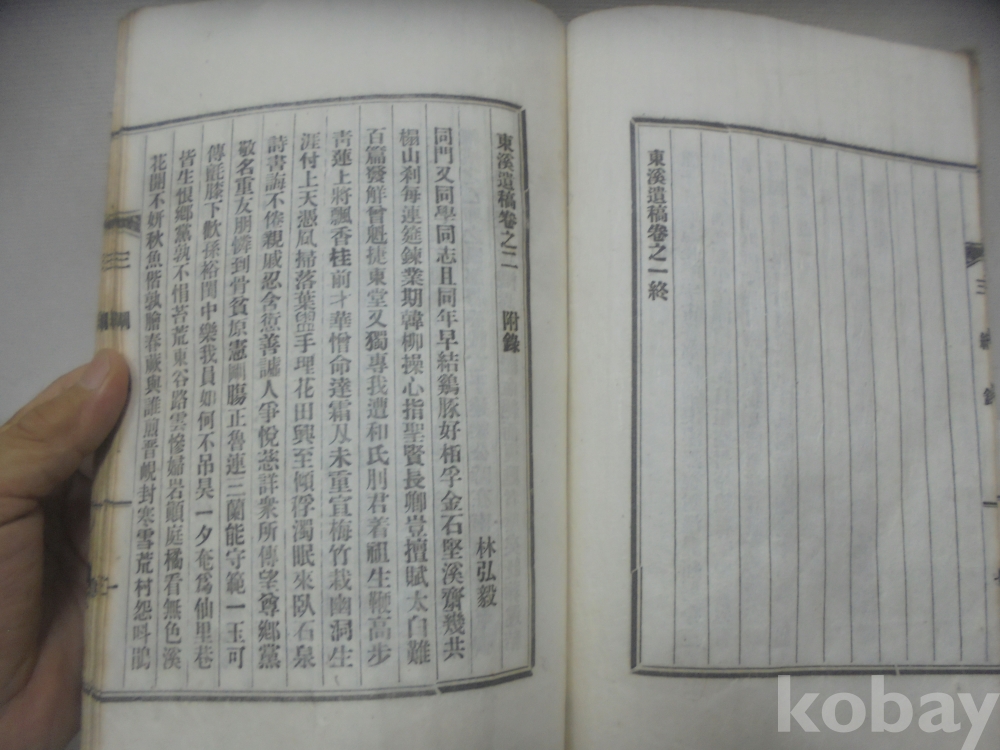 東溪遺稿卷之一終
東溪遺稿卷之二 附錄
林弘毅
同門又同學同志且同年早結鷄豚好相孚金石堅溪齋幾共
楊山刹每連筵鍊業期韓柳操心指聖賢長卿豈擅賦太白難
百篇發解曾魁捷東堂又獨專我遭和氏刖君着祖生鞭高步
靑蓮上將飄香桂前才華憎命達霜刄未重宣梅竹栽幽洞生
涯付上天憑風掃落葉盥手理花田興至傾浮濁眠來臥石泉
詩書誨不倦親戚忍含蘁善謔人爭悅慈詳衆所傳望尊鄕黨
敬名重友朋憐到骨貧原憲剛膓正魯連三蘭能守範一玉可
傳氈膝下歡孫裕閨中樂我員如何不吊昊一夕奄爲仙里巷
皆生恨鄕黨孰不悁苔荒東谷路雲慘婦岩顚庭橘看無色溪
花開不妍秋魚偕孰膾春蕨與誰煎晋峴封寒雪荒村怨呌鵑
kobay